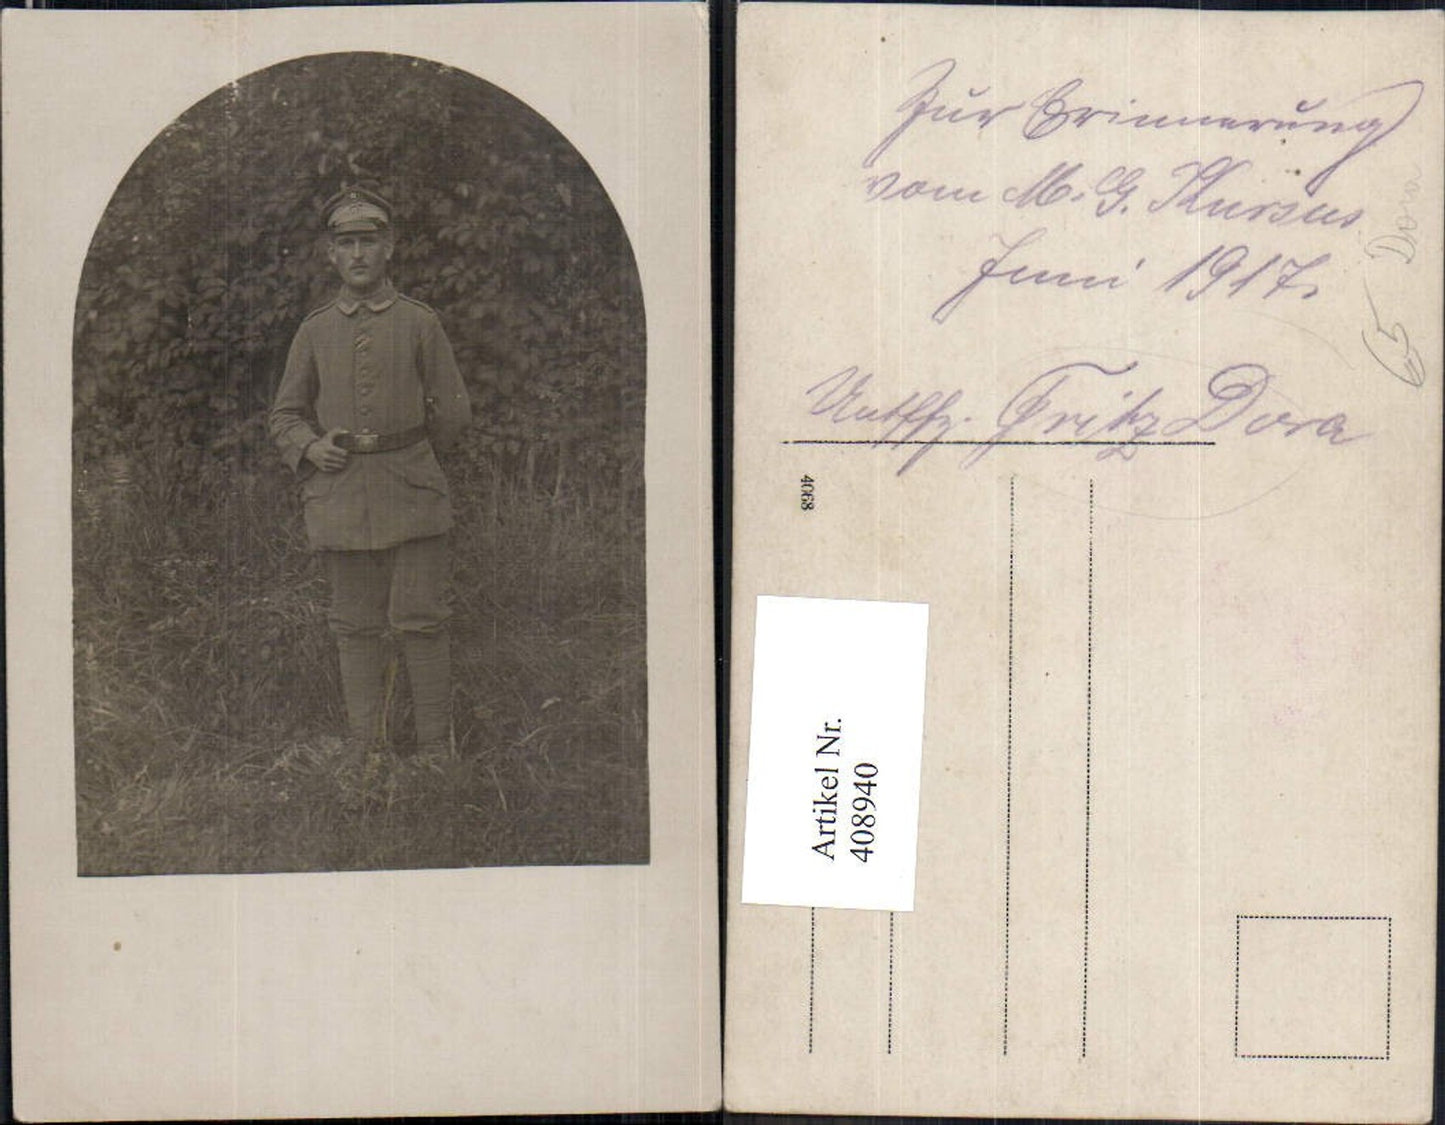 Zur Erinnerung
vom M. G. Kursus
Juni 1917.
Untffz. Fritz Dora
65 Dora
4068
Artikel Nr.
408940